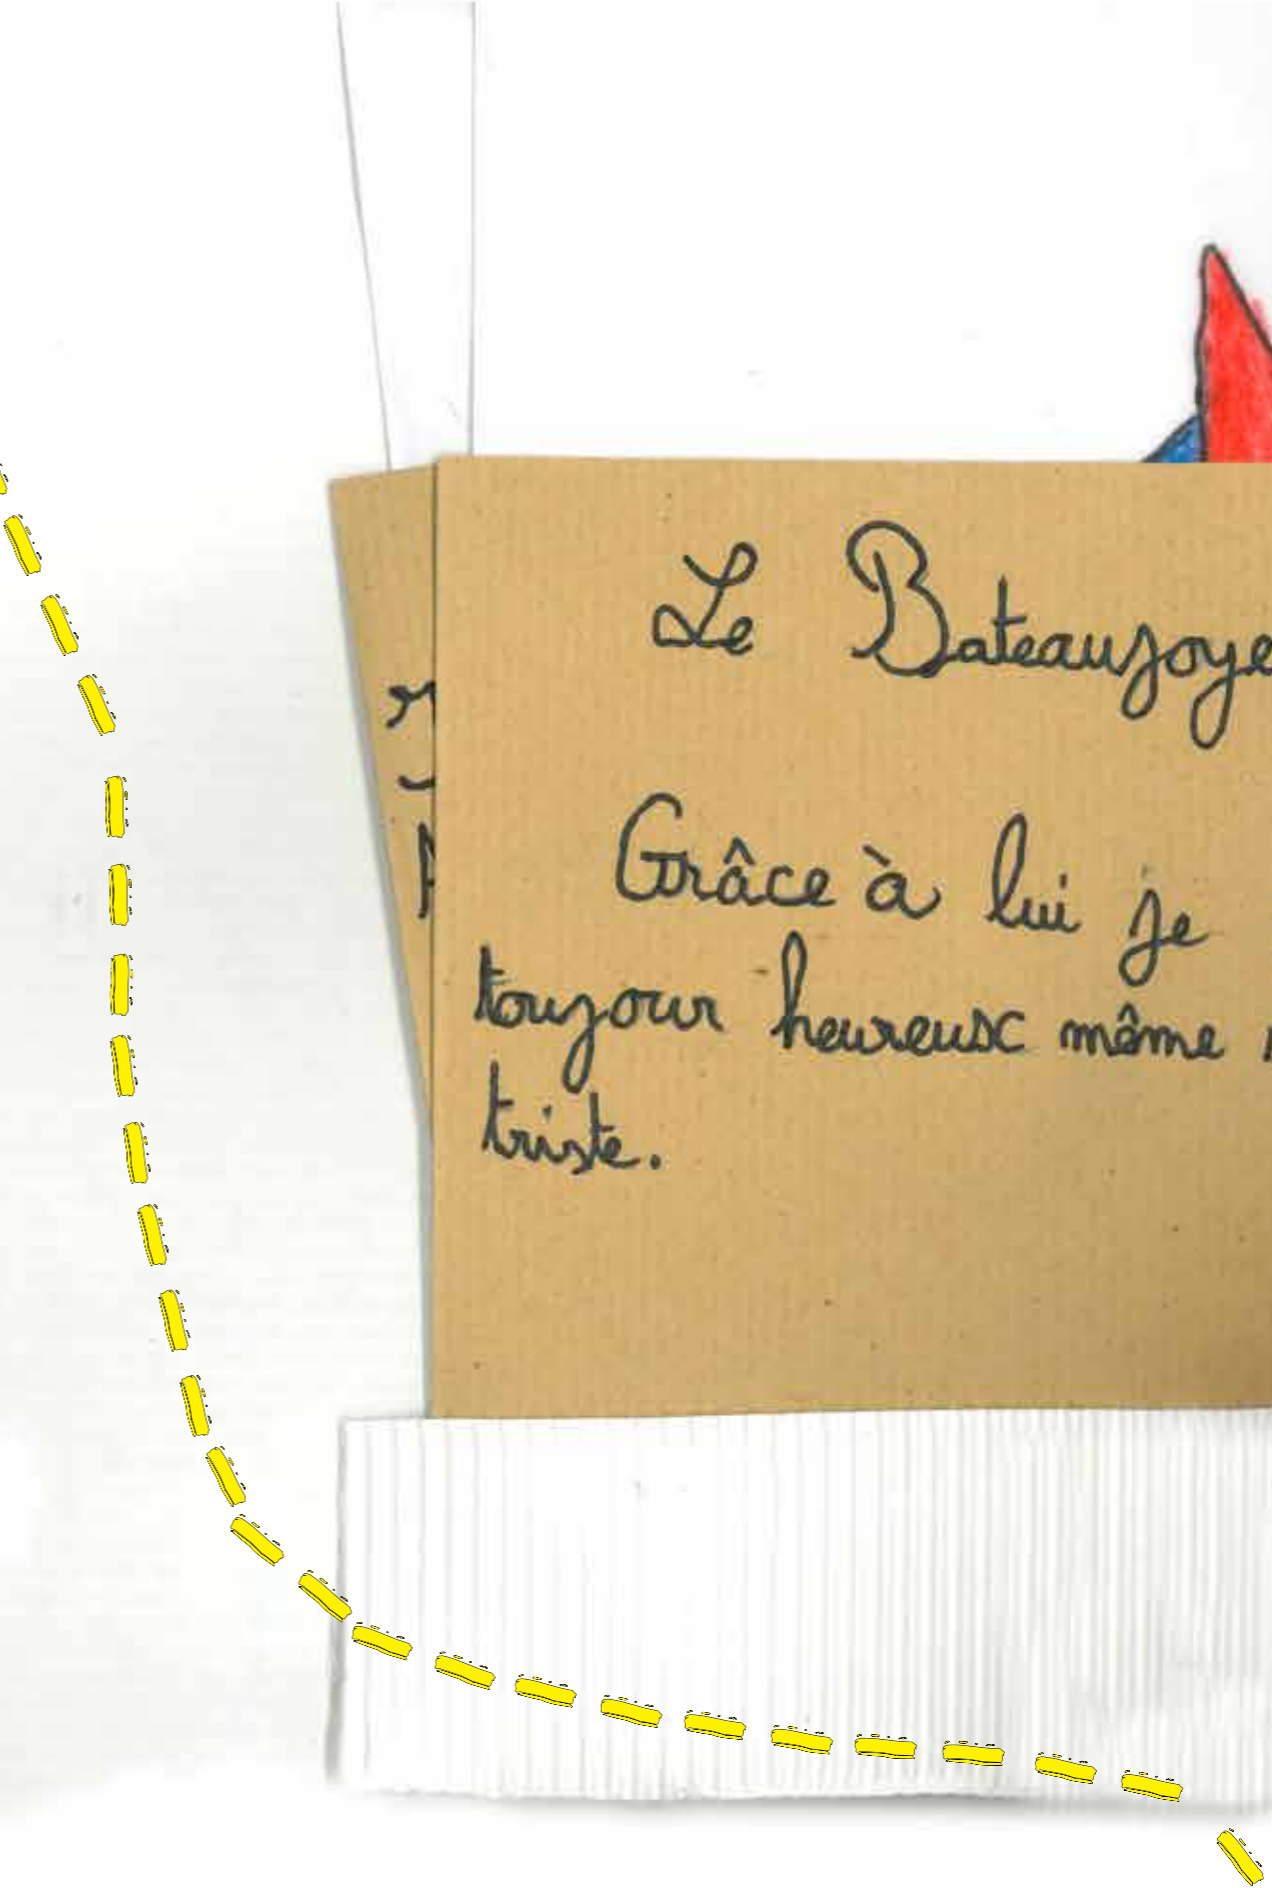 Le Bateaujoye
Grâce à lui je
toujour heureux même
triste.